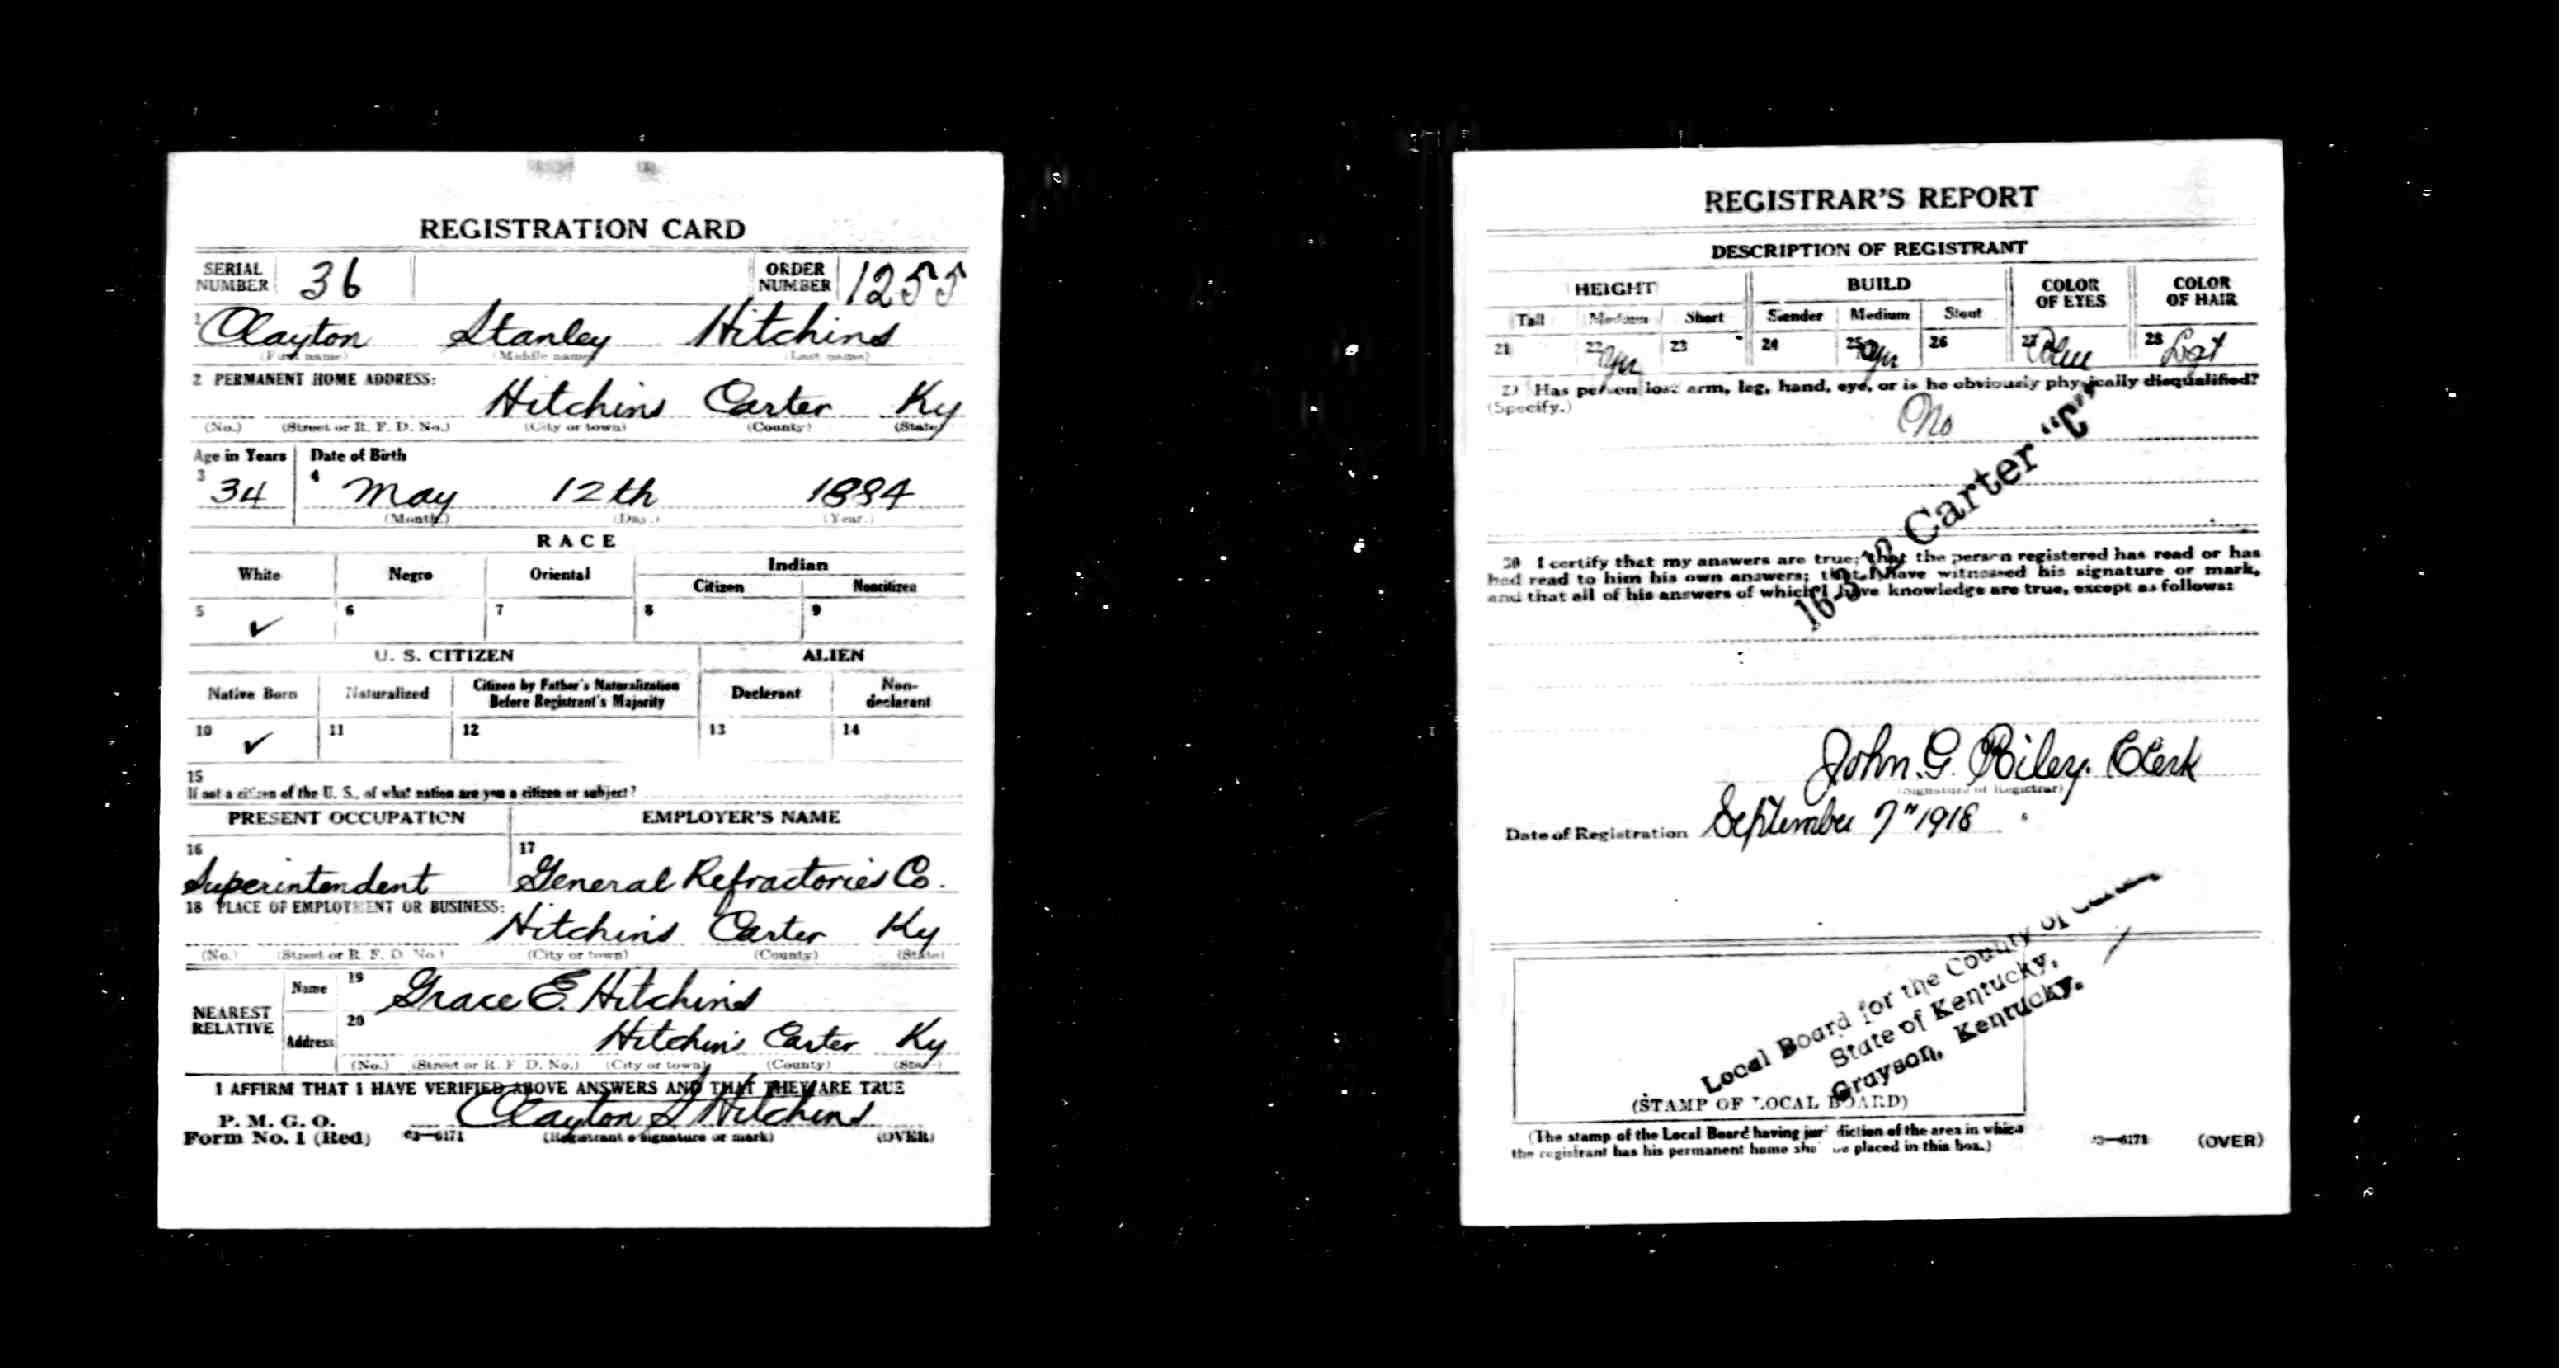 REGISTRATION CARD
SERIAL NUMBER 36 ORDER NUMBER 1255
1 Clayton Stanley Hitchins
(First name) (Middle name) (Last name)
2 PERMANENT HOME ADDRESS:
Hitchins Carter Ky
(No.) (Street or R. F. D. No.) (City or town) (County) (State)
Age in Years Date of Birth
3 34 4 May 12th 1884
(Month.) (Day.) (Year.)
RACE
White Negro Oriental Indian
Citizen Noncitizen
5 ✓ 6 7 8 9
U. S. CITIZEN ALIEN
Native Born Naturalized Citizen by Father's Naturalization Before Registrant's Majority Declarant Non-declarant
10 ✓ 11 12 13 14
15
If not a citizen of the U. S., of what nation are you a citizen or subject?
PRESENT OCCUPATION EMPLOYER'S NAME
16 Superintendent 17 General Refractories Co.
18 PLACE OF EMPLOYMENT OR BUSINESS:
Hitchins Carter Ky
(No.) (Street or R. F. D. No.) (City or town) (County) (State)
NEAREST RELATIVE Name 19 Grace E. Hitchins
Address 20 Hitchins Carter Ky
(No.) (Street or R. F. D. No.) (City or town) (County) (State)
I AFFIRM THAT I HAVE VERIFIED ABOVE ANSWERS AND THAT THEY ARE TRUE
P. M. G. O.
Form No. 1 (Red) 03—6171 Clayton S Hitchins
(Registrant's signature or mark) (OVER)
REGISTRAR'S REPORT
DESCRIPTION OF REGISTRANT
HEIGHT BUILD COLOR OF EYES COLOR OF HAIR
Tall Medium Short Slender Medium Stout
21 22 yes 23 24 25 yes 26 27 Blue 28 Lgt
29 Has person lost arm, leg, hand, eye, or is he obviously physically disqualified?
(Specify.)
No
Carter "C"
30 I certify that my answers are true; that the person registered has read or has
had read to him his own answers; that I have witnessed his signature or mark,
and that all of his answers of which I have knowledge are true, except as follows:
John G. Riley. Clerk
(Signature of Registrar)
Date of Registration September 7" 1918
Local Board for the County of
State of Kentucky,
Grayson, Kentucky.
(STAMP OF LOCAL BOARD)
(The stamp of the Local Board having jurisdiction of the area in which
the registrant has his permanent home shall be placed in this box.)
03—6171 (OVER)